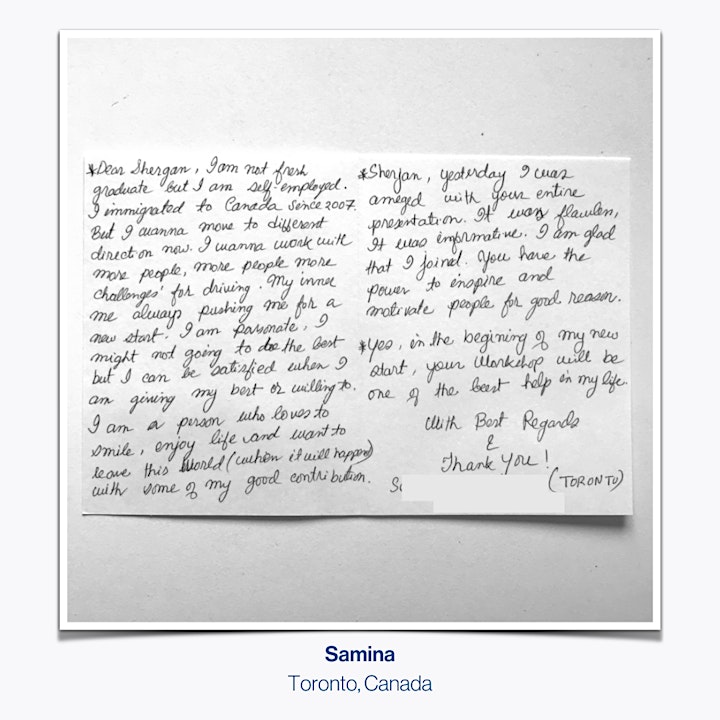 *Dear Shergan, I am not fresh
graduate but I am self-employed.
I immigrated to Canada since 2007.
But I wanna move to different
direction now. I wanna work with
more people, more people more
challenges' for driving. My inner
me always pushing me for a
new start. I am passonate, I
might not going to do the best
but I can be satisfied when I
am giving my best or willing to.
I am a person who loves to
smile, enjoy life and want to
leave this world (when it will happen)
with some of my good contribution.
*Sherjan, yesterday I was
ameged with your entire
presentation. It was flawlen,
It was informative. I am glad
that I joined. You have the
power to inspire and
motivate people for good reason.
*Yes, in the begining of my new
start, your workshop will be
one of the best help in my life.
With Best Regards
&
Thank You!
(TORONTO)
Samina
Toronto, Canada